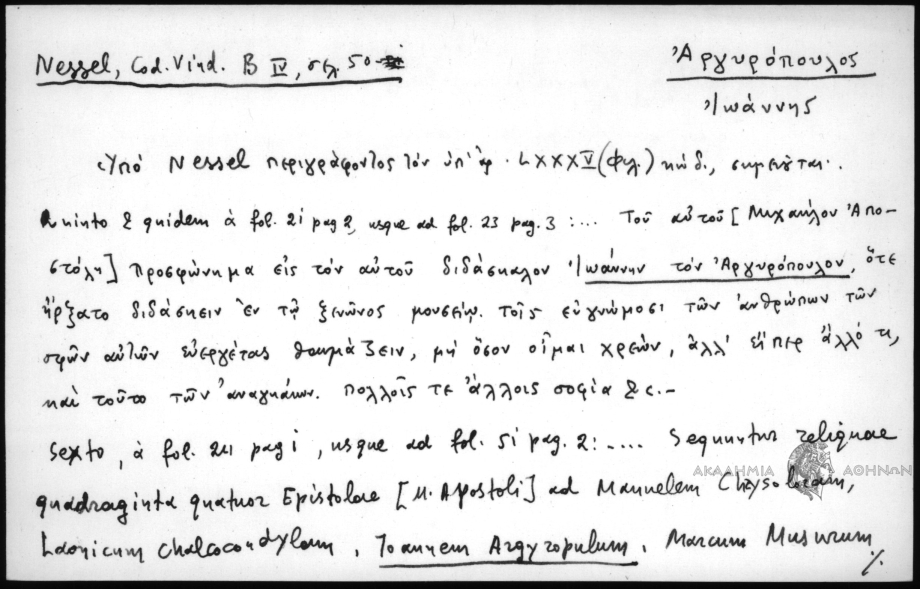 Nessel, Cod. Vind. B IV, σελ. 50
Ἀργυρόπουλος
Ἰωάννης
Ὑπὸ Nessel περιγράφοντος τὸν ὑπ' ἀρ. LXXXV (Φιλ.) κώδ., σημειοῦται.
Quinto & quidem à fol. 21 pag 2, usque ad fol. 23 pag. 3 : ... Τοῦ αὐτοῦ [Μιχαήλου Ἀπο-
στόλη] Προσφώνημα εἰς τὸν αὐτοῦ διδάσκαλον Ἰωάννην τὸν Ἀργυρόπουλον, ὅτε
ἤρξατο διδάσκειν ἐν τῷ ξενῶνος μουσείῳ. Τοῖς εὐγνώμοσι τῶν ἀνθρώπων τῶν
σφῶν αὐτῶν εὐεργέτας θαυμάζειν, μὴ ὅσον οἶμαι χρεών, ἀλλ' εἴπερ ἄλλό τι,
καὶ τοῦτο τῶν ἀναγκαίων. Πολλοῖς τε ἄλλοις σοφία &c.–
Sexto, à fol. 24 pag 1, usque ad fol. 51 pag. 2: .... Sequuntur reliquae
ΑΚΑΔΗΜΙΑ ΑΘΗΝΩΝ
quadraginta quatuor Epistolae [M. Apostoli] ad Manuelem Chrysoloram,
Laonicum Chalcocondylam, Ioannem Argyropulum, Marcum Musurum
%